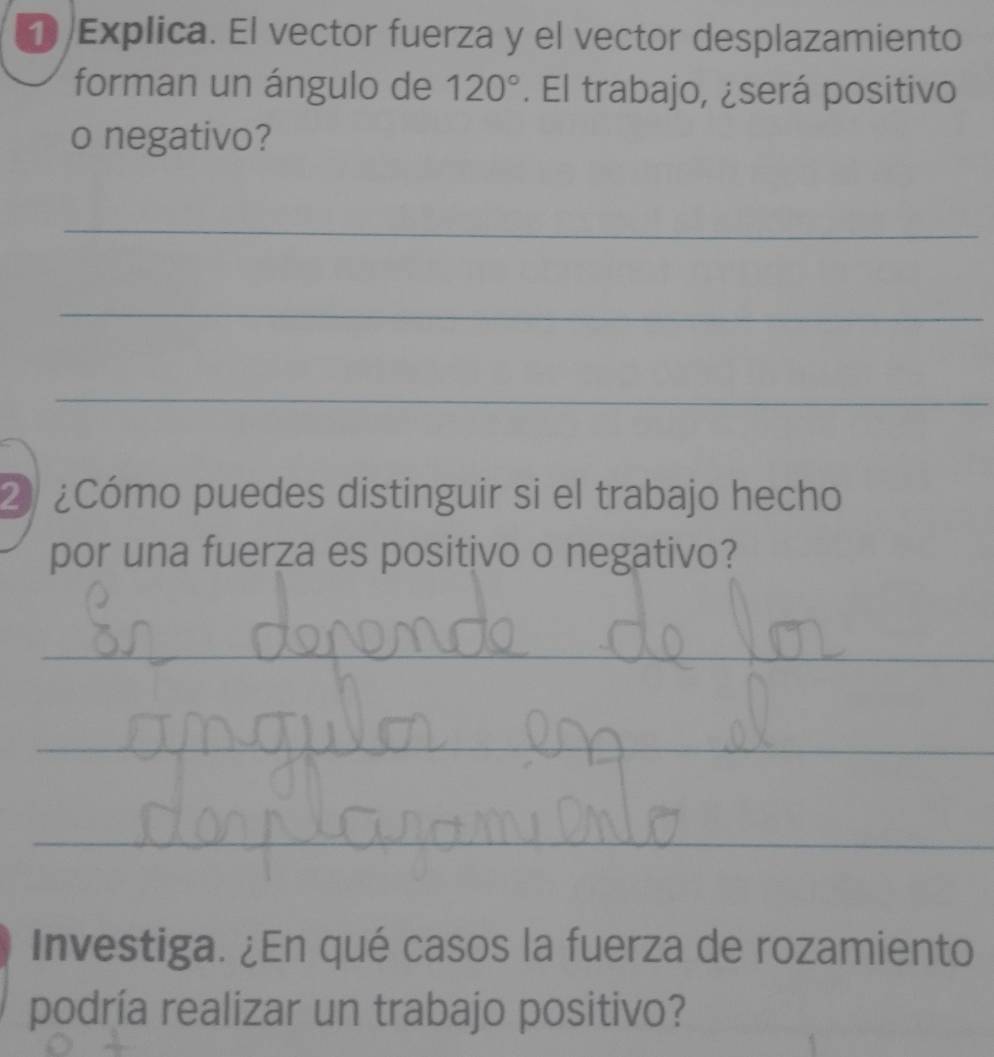 1 Explica. El vector fuerza y el vector desplazamiento
forman un ángulo de 120°. El trabajo, ¿será positivo
o negativo?
2 ¿Cómo puedes distinguir si el trabajo hecho
por una fuerza es positivo o negativo?
depende de los
angulos en el
desplazamiento
Investiga. ¿En qué casos la fuerza de rozamiento
podría realizar un trabajo positivo?